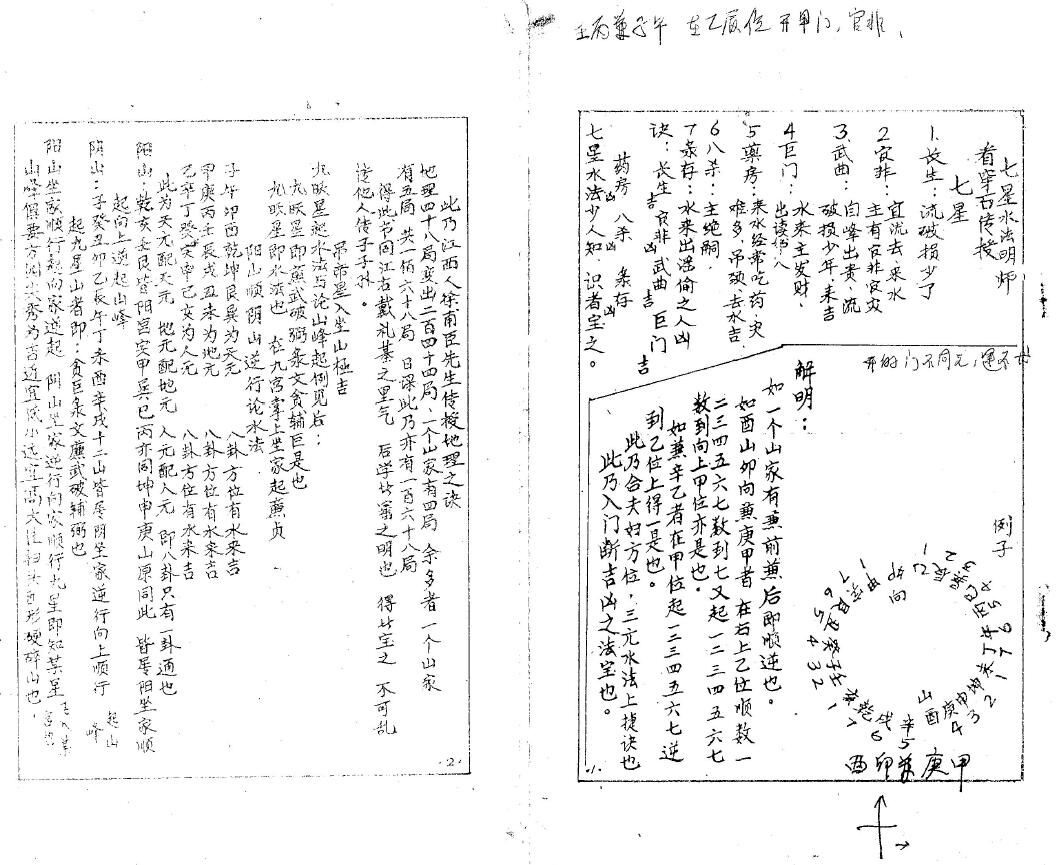 壬丙兼子午 在乙辰位 开甲门，官非，
七星水法明师
看穿石传授
七星
1.长生：流破损少了
2官非：宜流去来水
主有官非官灾
3.武曲：自峰出贵、流
破损少年、来吉
4巨门：水来主发财，
出读书人
5药房：来水经常吃药、灾
难多，吊颈、去水吉
6八杀：主绝嗣．
7条存：水来出淫偷之人凶
诀：长生吉 官非凶 武曲吉 巨门吉
药房凶 八杀凶 条存凶
七星水法少人知 识者宝之。
开的门不同元，运不
解明：
如一个山家有兼前兼后即顺逆也。
如酉山卯向兼庚甲者 在右上乙位顺数一
二三四五六七数到七又起一二三四五六七
数到向上甲位亦是也。
如兼辛乙者在甲位起一二三四五六七逆
到乙位上得一是也。
此乃合夫妇方位，三元水法上捷诀也
此乃入门断吉凶之法宝也。
例子
卯向
乙辰巽巳丙午丁未坤申庚酉辛戌乾亥壬子癸丑艮寅甲
1 2 3 4 5 6 7 1 2 3 4 5 6 7 1 2 3 4 5 6 7 1
山
酉卯兼庚甲
1.
此乃江西人徐甫臣先生传授地理之诀
地理四十八局变出二百四十四局、一个山家有四局 余多者一个山家
有五局 共一佰六十八局 日课此乃亦有一百六十八局
得此书同江右戴礼基之里气 后学廿翁之明也 得廿宝之 不可乱
传他人传子子孙。
吊帝星入坐山极吉
九跃星起水法与论山峰起例见后：
九跃星即廉武破弼条文贪辅巨是也
九跃星即水法也 在九宫掌上坐家起廉贞
阳山顺阴山逆行论水法
子午卯酉乾坤艮巽为天元 八卦方位有水来吉
甲庚丙壬辰戌丑未为地元 八卦方位有水来吉
乙辛丁癸寅申巳亥为人元 八卦方位有水来吉
此为天元配天元 地元配地元 人元配人元 即八卦只有一卦通也
阳山：乾亥壬艮皆阳宫寅甲巽巳丙亦同坤申庚山原同此 皆是阳坐家顺
起向上逆起山峰
阴山：子癸丑卯乙辰午丁未酉辛戌十二山皆是阴坐家逆行向上顺行
起山峰
起九星山者即：贪巨条文廉武破辅弼也
阳山坐家顺行起向家逆起 阴山坐家逆行向家顺行九星即知某星